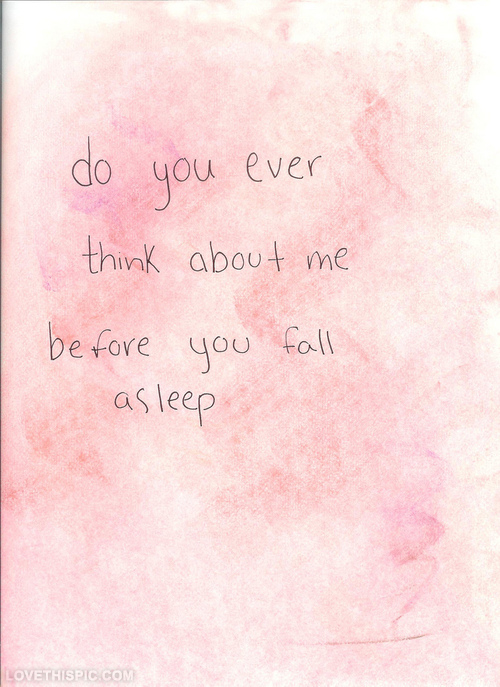 do you ever
think about me
before you fall
asleep
LOVETHISPIC.COM